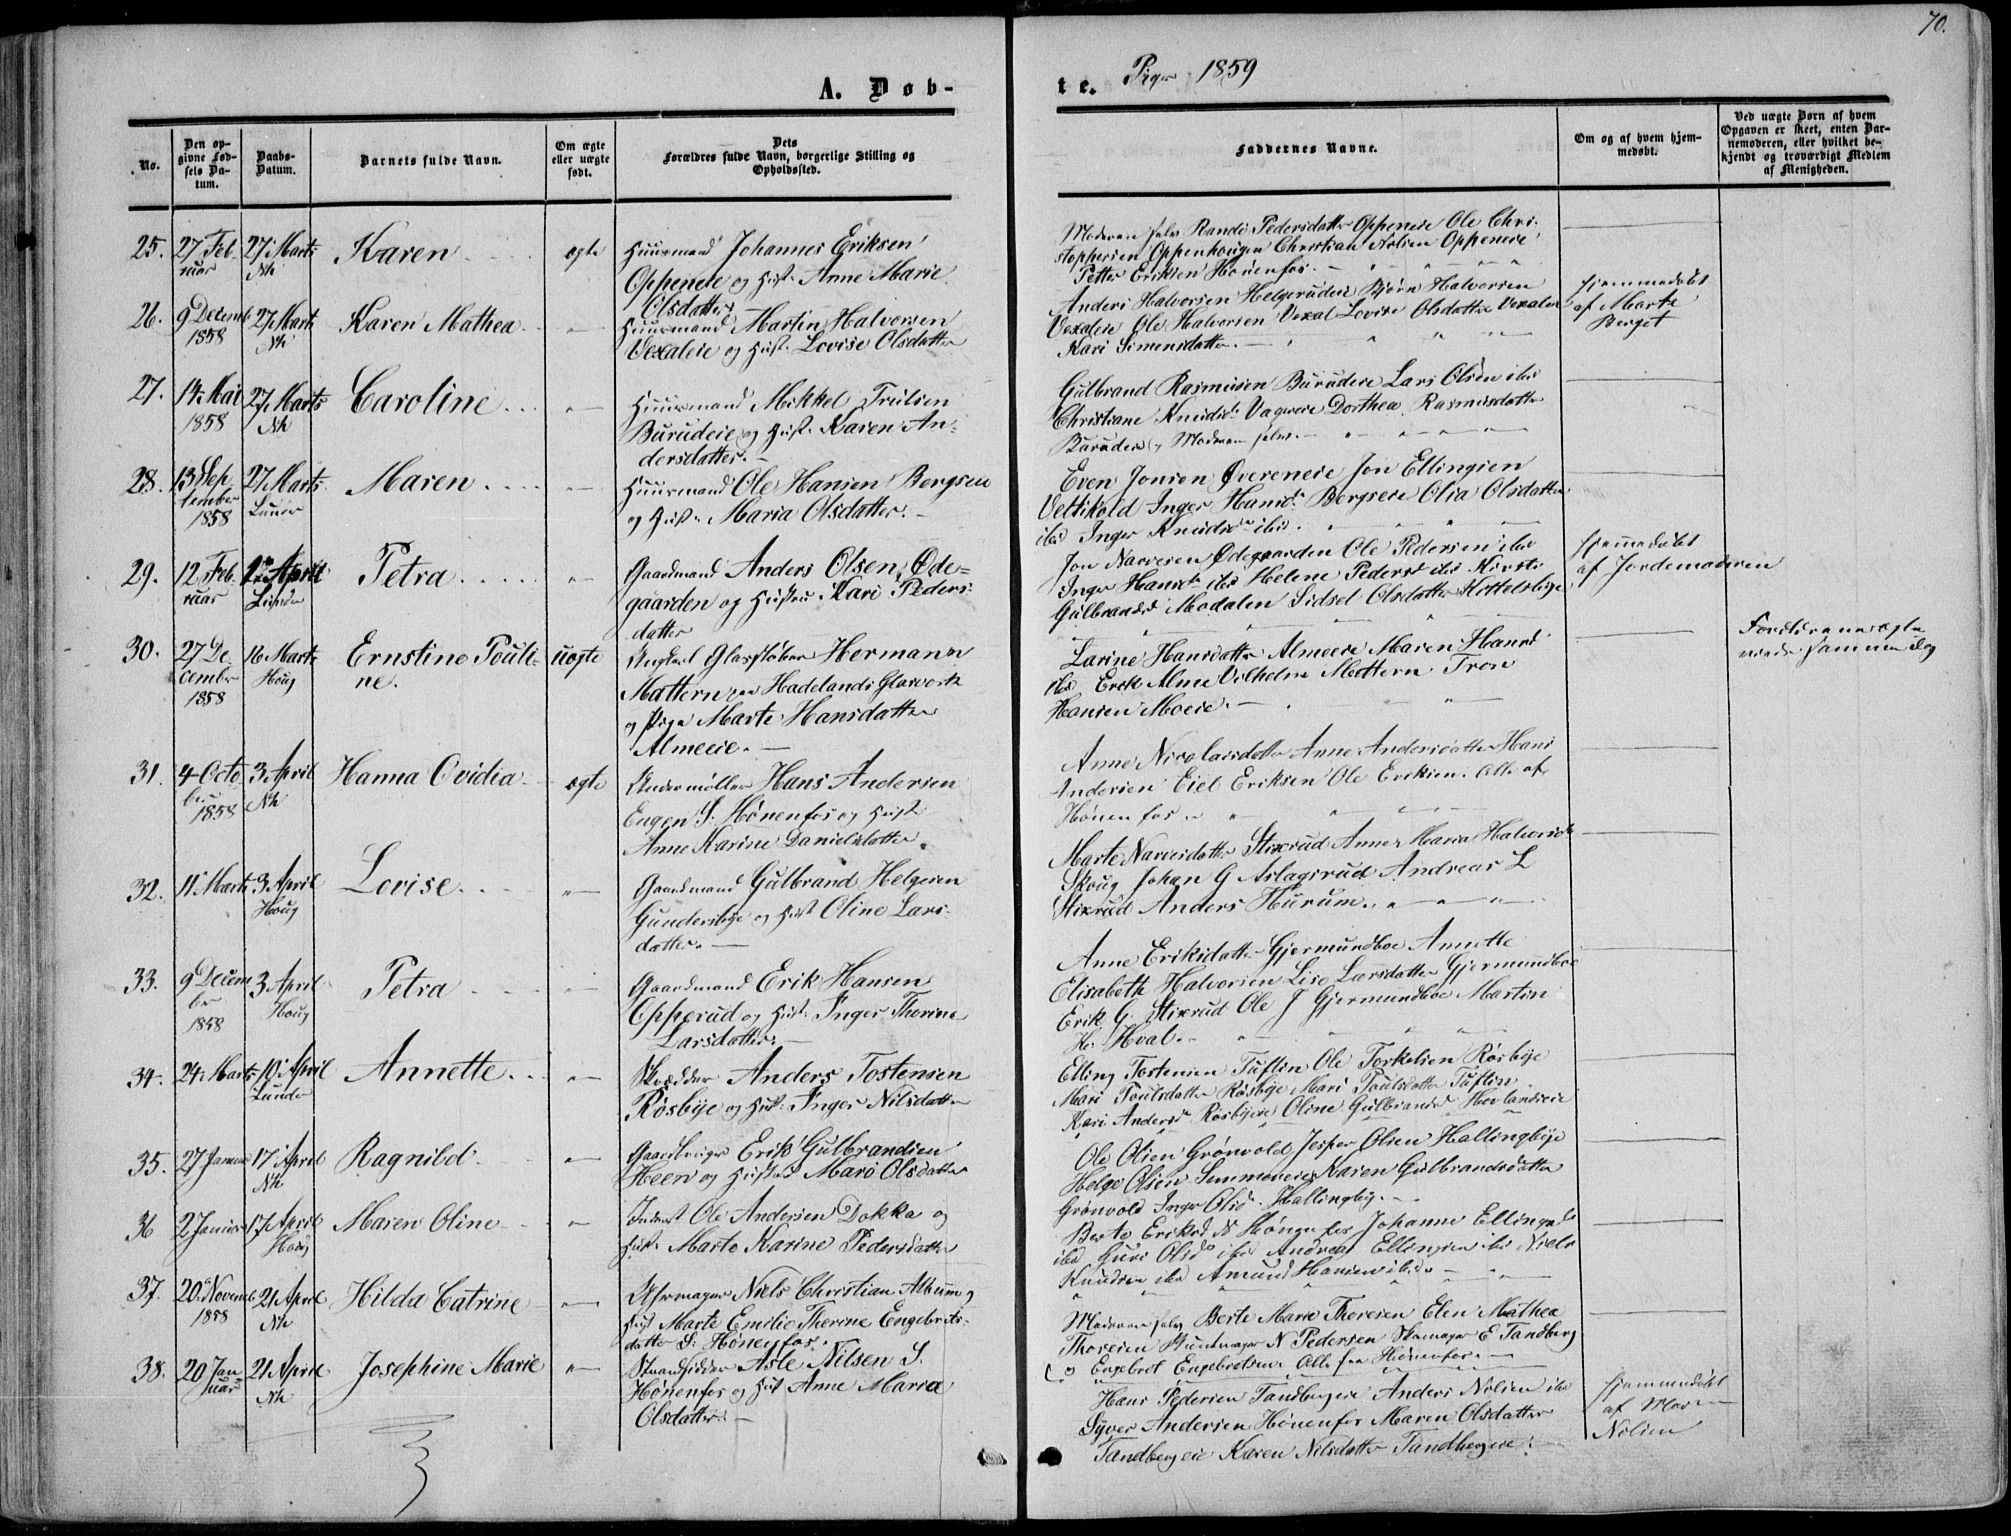 70.
A. Døb-
te. Piger 1859
No.
Den op-
givne Fød-
sels Da-
tum.
Daabs-
Datum.
Barnets fulde Navn.
Om ægte
eller uægte
født.
Dets
Forældres fulde Navn, borgerlige Stilling og
Opholdssted.
Faddernes Navne.
Om og af hvem hjem-
medøbt.
Ved uægte Børn af hvem
Opgaven er skeet, enten Bar-
nemoderen, eller hvilket be-
kjendt og troværdigt Medlem
af Menigheden.
25. 27 Feb 27 Marts Karen ægte Huusmand Johannes Eriksen
ruar Nh
Oppeneie og Hust. Anne Marie
Olsdatter
Moderen selv Randi Pedersdatter Oppeneie Ole Chri-
stophersen Oppenhougen Christian Oppeneie
Petter Eriksen Hönenfos.
26. 9 Decemb 27 Marts Karen Mathea " Huusmand Martin Halvorsen
1858 Nh
Vexaleie og Hust. Lovise Olsdatter
Anders Halvorsen Helgerudeie Bjørn Halvorsen
Vexaleie Ole Halvorsen Vexal Lovise Olsdatter Vexaleie
Kari Simensdatter.
hjemmedøbt
af Marte
Berget
27. 14 Mai 27 Marts Caroline " Huusmand Mikkel Trulsen
1858 Nh
Burudeie og Hust. Karen An-
dersdatter.
Gulbrand Rasmusen Burudeie Lars Olsen ibd
Christiane Knudsd. Dorthea Rasmusdatter
Burudeie, Moderen selv.
28. 13 Sep 27 Marts Maren " Huusmand Ole Hansen Bergseie
tember Lunder
1858
og Hust. Maria Olsdatter.
Even Jonsen Övereneie Jon Ellingsen
Vettikold Inger Hansd. Bergseie Olia Olsdatter
ibd Inger Knudsd. ibd.
29. 12 Feb April Petra " Gaardmand Anders Olsen Øde-
ruar Lunder
gaarden og Hustru Kari Peders-
datter
Jon Narvesen Ødegaarden Ole Pedersen ibd
Inger Hansd. ibd Helene Pedersd. ibd Kirsti
Gulbrandsd. Modalen Sidsel Olsdatter
hjemmedøbt
af Jordemoderen
30. 27 De- 16 Marts Ernstine Pouli- uægte Ungkarl Glaspuster Hermann
cember Houg ne.
1858
Mattern paa Hadelands Glasværk
og Pige Marte Hansdatter
Almeeie.
Larine Hansdatter Almeeie Maren Hansd.
ibd Erik Alme Vilhelm Mattern Tron
Hansen Moeie.
Forældrene
samme Dag
31. 4 Octo 3 April Hanna Ovidia ægte Undermøller Hans Andersen
ber Nh
1858
Engen S. Hönenfos og Hust.
Anne Karine Danielsdatter.
Anne Nicolaisdatter Anne Andersdatter Hans
Andersen Eiel Eriksen Ole Eriksen. Alle af
Hönenfos.
32. 11 Marts 3 April Lovise " Gaardmand Gulbrand Helgesen
Houg
Gundersbye og Hust Oline Lars-
datter.
Marte Narvesdatter Stixrud Anne Maria Halvorsd.
Skoug Johan G Aslagsrud Andreas L
Stixrud Anders Hurum.
33. 9 Decem 3 April Petra " Gaardmand Erik Hansen
ber Houg
1858
Opperud og Hust. Inger Thorine
Larsdatter.
Anne Eriksdatter Gjermundboe Annette
Elisabeth Halvorsen Lise Larsdatter Gjermundboe
Erik G. Stixrud Ole J Gjermundboe Martin
H. Hval.
34. 24 Marts 10 April Annette " Skrædder Anders Tostensen
Lunder
Rösbye og Hust. Inger Nilsdatter
Elling Tostensen Tuftin Ole Torkelsen Rösbye
Mari Poulsdatter Rösbye Mari Poulsdatter Tuftin
Kari Andersd. Rösbyeie Oline Gulbrandsd. Hovlandseie
35. 27 Januar 17 April Ragnild " Gaardbruger Erik Gulbrandsen
Nh
Heen og Hustru Mari Olsdatter
Ole Olsen Grönvold Jesper Olsen Hallingbye
Helge Olsen Karen Gulbrandsdatter
Grönvold Inger Olsd. Hallingby.
36 2 Januar 17 April Maren Oline " Inderst Ole Andersen Dokka og
Houg
Hust. Marte Karine Pedersdatter
Berte Eriksd. Hönenfos Johanne Ellingsd.
ibd Guri Olsd. ibd Andreas Ellingsen ibd Niels
Knudsen ibd Amund Hansen ibd.
37. 20 Novemb 21 April Hilda Catrine " Niels Christian Album og
1858 Nh
Hust Marte Emilie Therine Engebrets-
datter S. Hönenfos.
Moderen selv Berte Marie Thoresen Elen Mathea
Thoresen Buntmager N Pedersen Skomager E Tandberg
og Engebret Engebretsen. Alle fra Hönenfos.
38. 20 Jan- 21 April Josephine Marie " Strandsidder Asle Nilsen S.
uar Nh
Hönenfos og Hust Anne Maria
Olsdatter.
Hans Pedersen Tandbergeie Anders Nilsen ibd
Syver Andersen Hönenfos Maren Olsdatter
Tandbergeie Karen Nilsdatter Tandbergeie.
hjemmedøbt
af
Nilsen